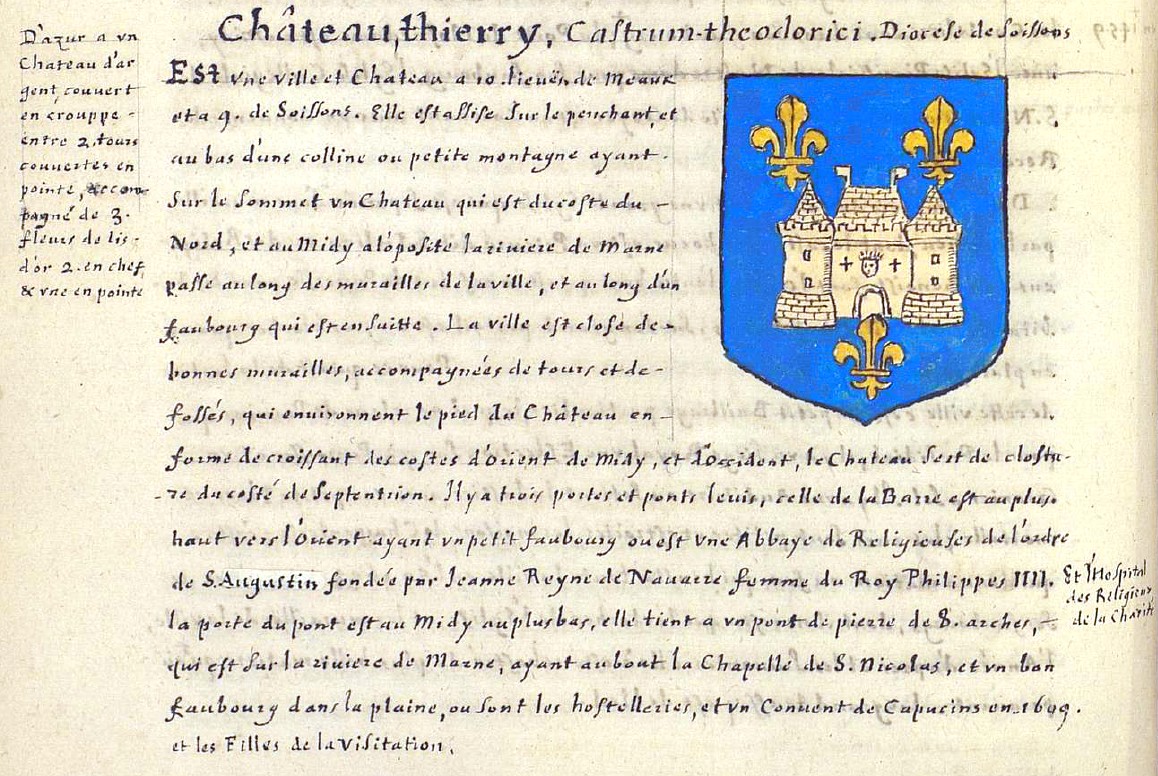 Château,thierry, Castrum-theodorici. Diocese de Soissons
D'azur a vn
Chateau d'ar
gent, couvert
en crouppe -
entre 2. tours
couvertes en
pointe, accom-
pagné de 3.
fleurs de lis -
d'or 2. en chef,
& vne en pointe
Est vne ville et Chateau a 10. lieuës de Meaux
et a 9. de Soissons. Elle est assise sur le penchant, et
au bas d'une colline ou petite montagne ayant .
sur le sommet vn Chateau qui est du coste du -
Nord, et au Midy a l'oposite la riviere de Marne
passe au long des murailles de la ville, et au long d'un
faubourg qui est en suitte . La ville est close de -
bonnes murailles, accompagnées de tours et de -
fossés, qui environnent le pied du Château en -
forme de croissant des costes d'Orient de Midy, et d'Occident, le Chateau sert de clostu-
-re du costé de Septentrion. Il y a trois portes et ponts levis, celle de la Barre est au plus.
haut vers l'Orient ayant vn petit faubourg ou est vne Abbaye de Religieuses de l'ordre
de S. Augustin fondée par Jeanne Reyne de Navarre femme du Roy Philippes IIII.
Et l'Hospital
des Religieux
de la Charité
la porte du pont est au Midy au plus bas, elle tient a vn pont de pierre de 8. arches, -
qui est sur la riviere de Marne, ayant au bout la Chapelle de S. Nicolas, et vn bon
faubourg dans la plaine, ou sont les hostelleries, et vn Convent de Capucins en .1699.
et les Filles de la Visitation.